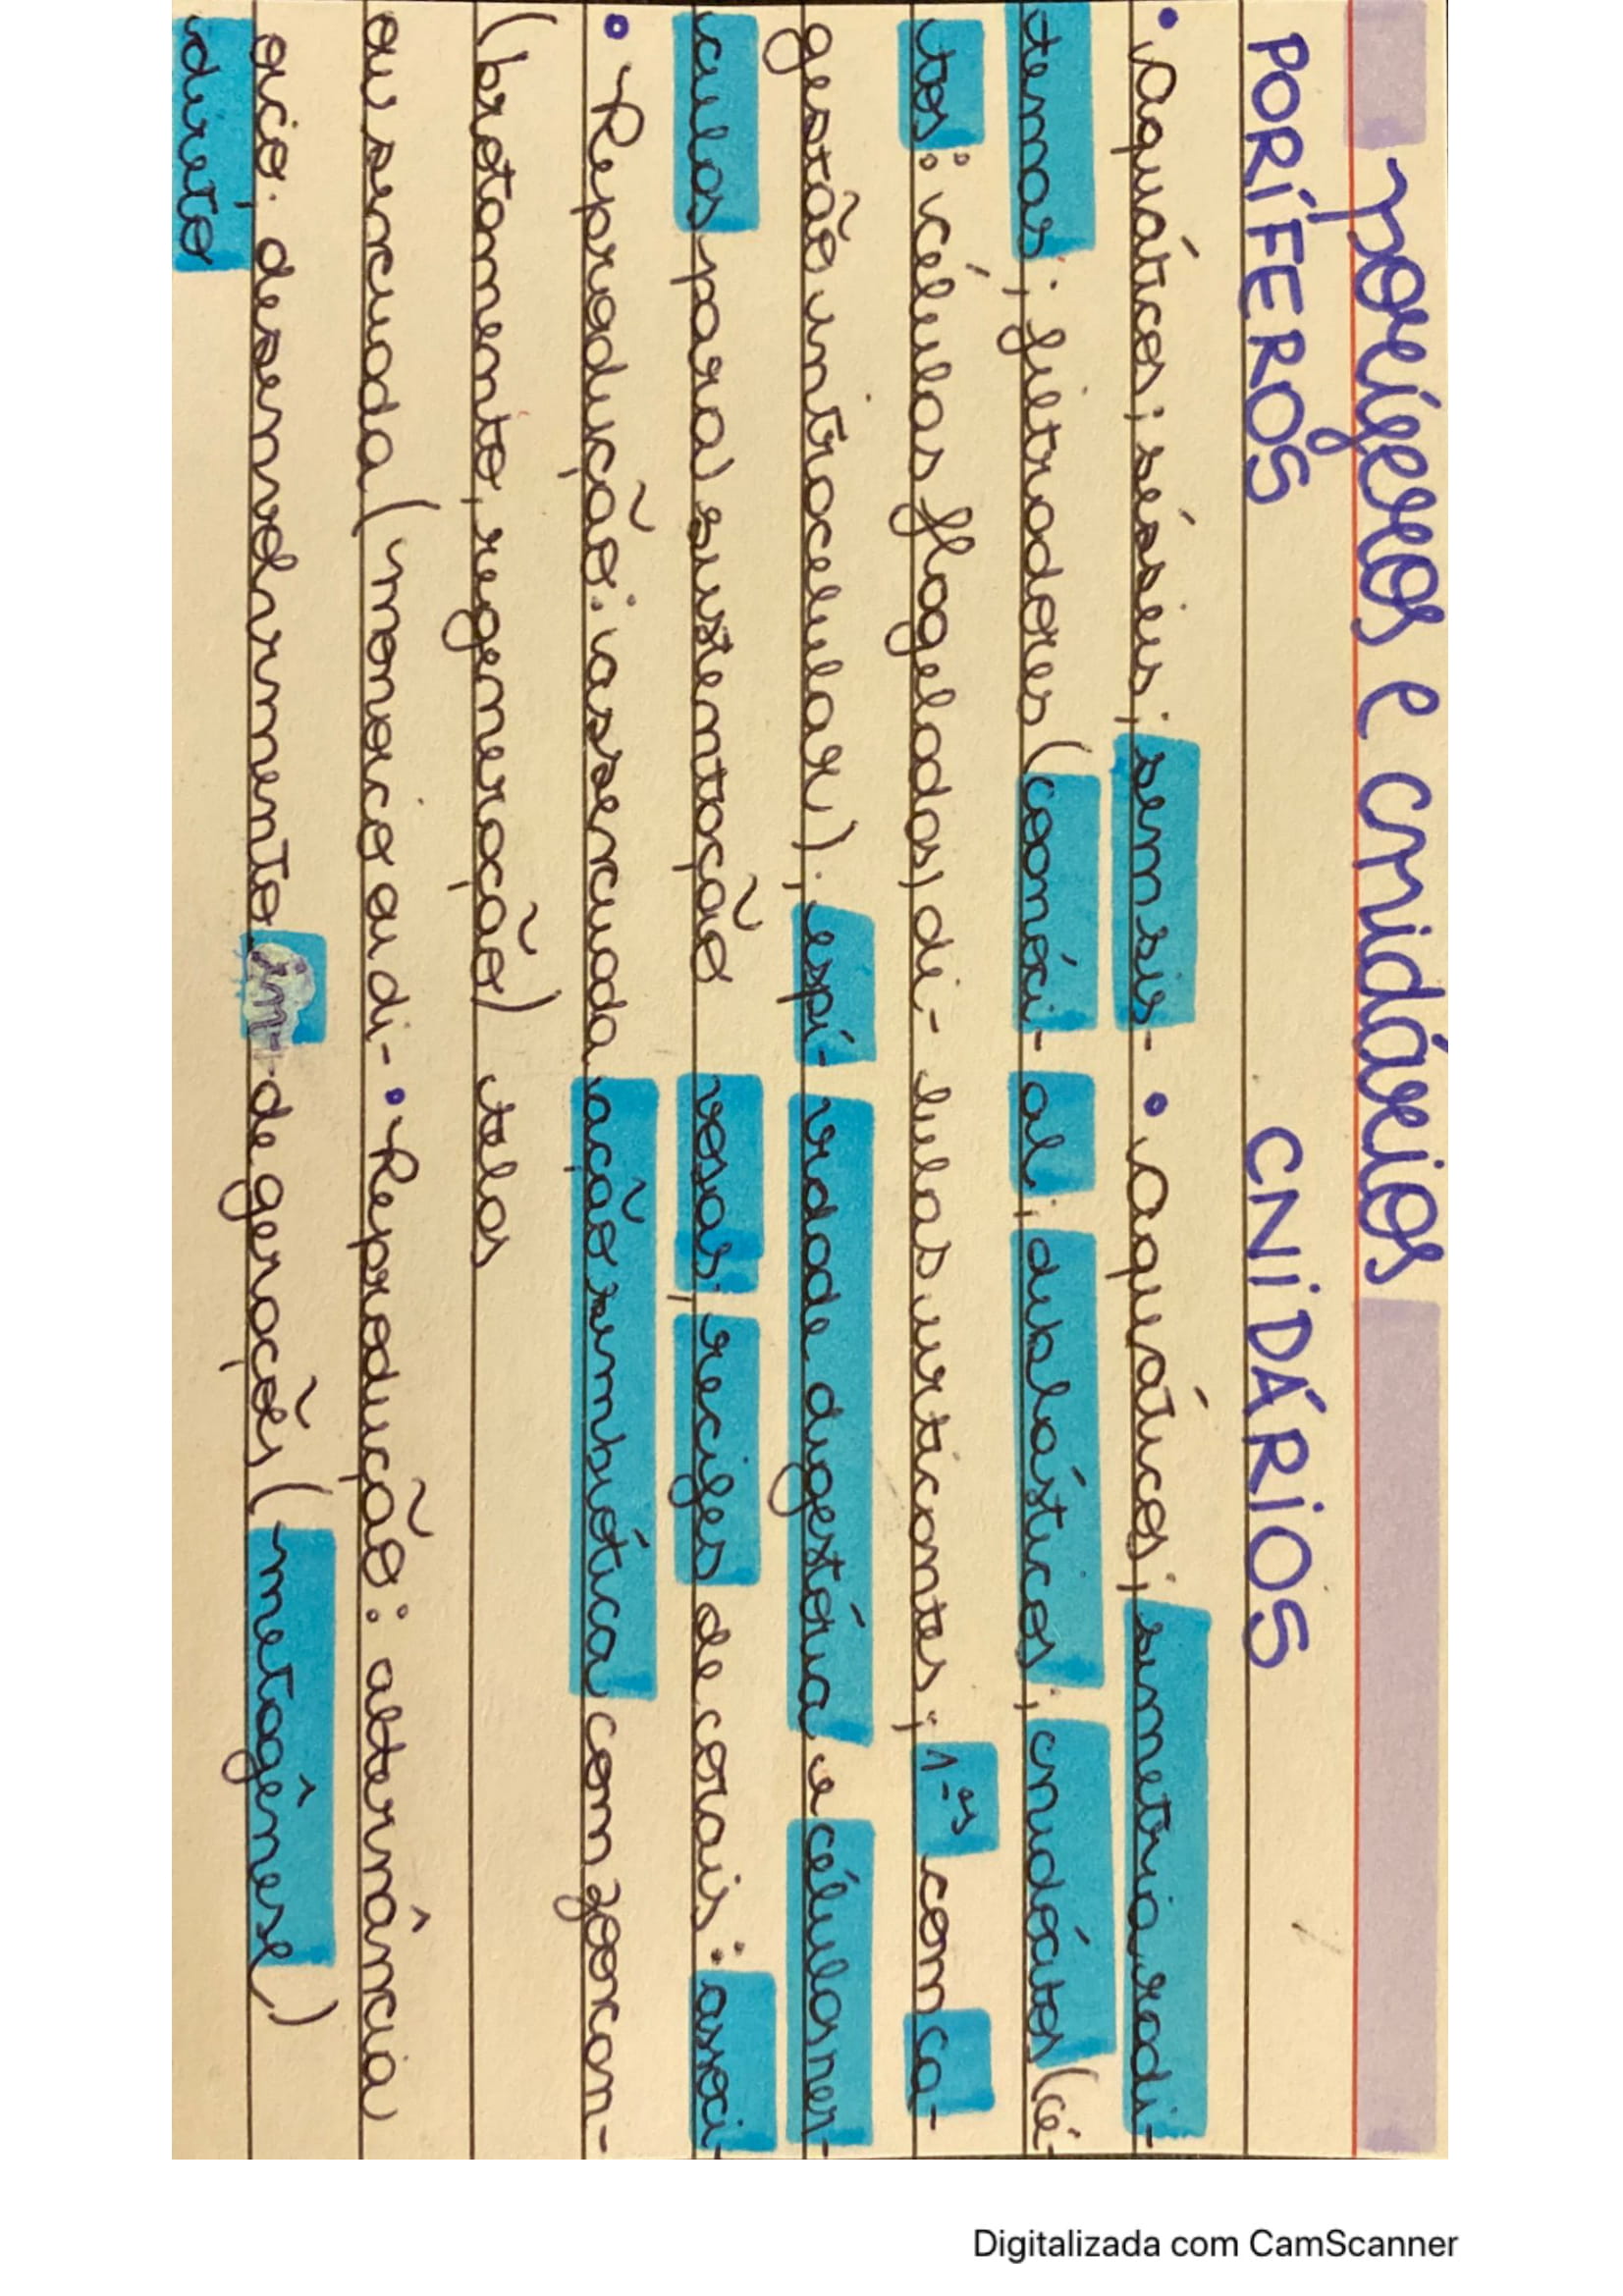 poríferos e cnidários
PORÍFEROS
• Aquáticos; sésseis; sem sis-
temas; filtradores (coanóci-
tos: células flageladas, di-
gestão intracelular); espí-
culas para sustentação
• Reprodução: assexuada
(brotamento, regeneração)
ou sexuada (monoico ou di-
oico. desenvolvimento in-
direto
CNIDÁRIOS
• Aquáticos; simetria radi-
al; diblásticos; cnidócitos (cé-
lulas urticantes; 1-as com ca-
vidade digestória e células ner-
vosas; recifes de corais: associ-
ação simbiótica com zooxan-
telas
• Reprodução: alternância
de gerações (metagênese)
Digitalizada com CamScanner